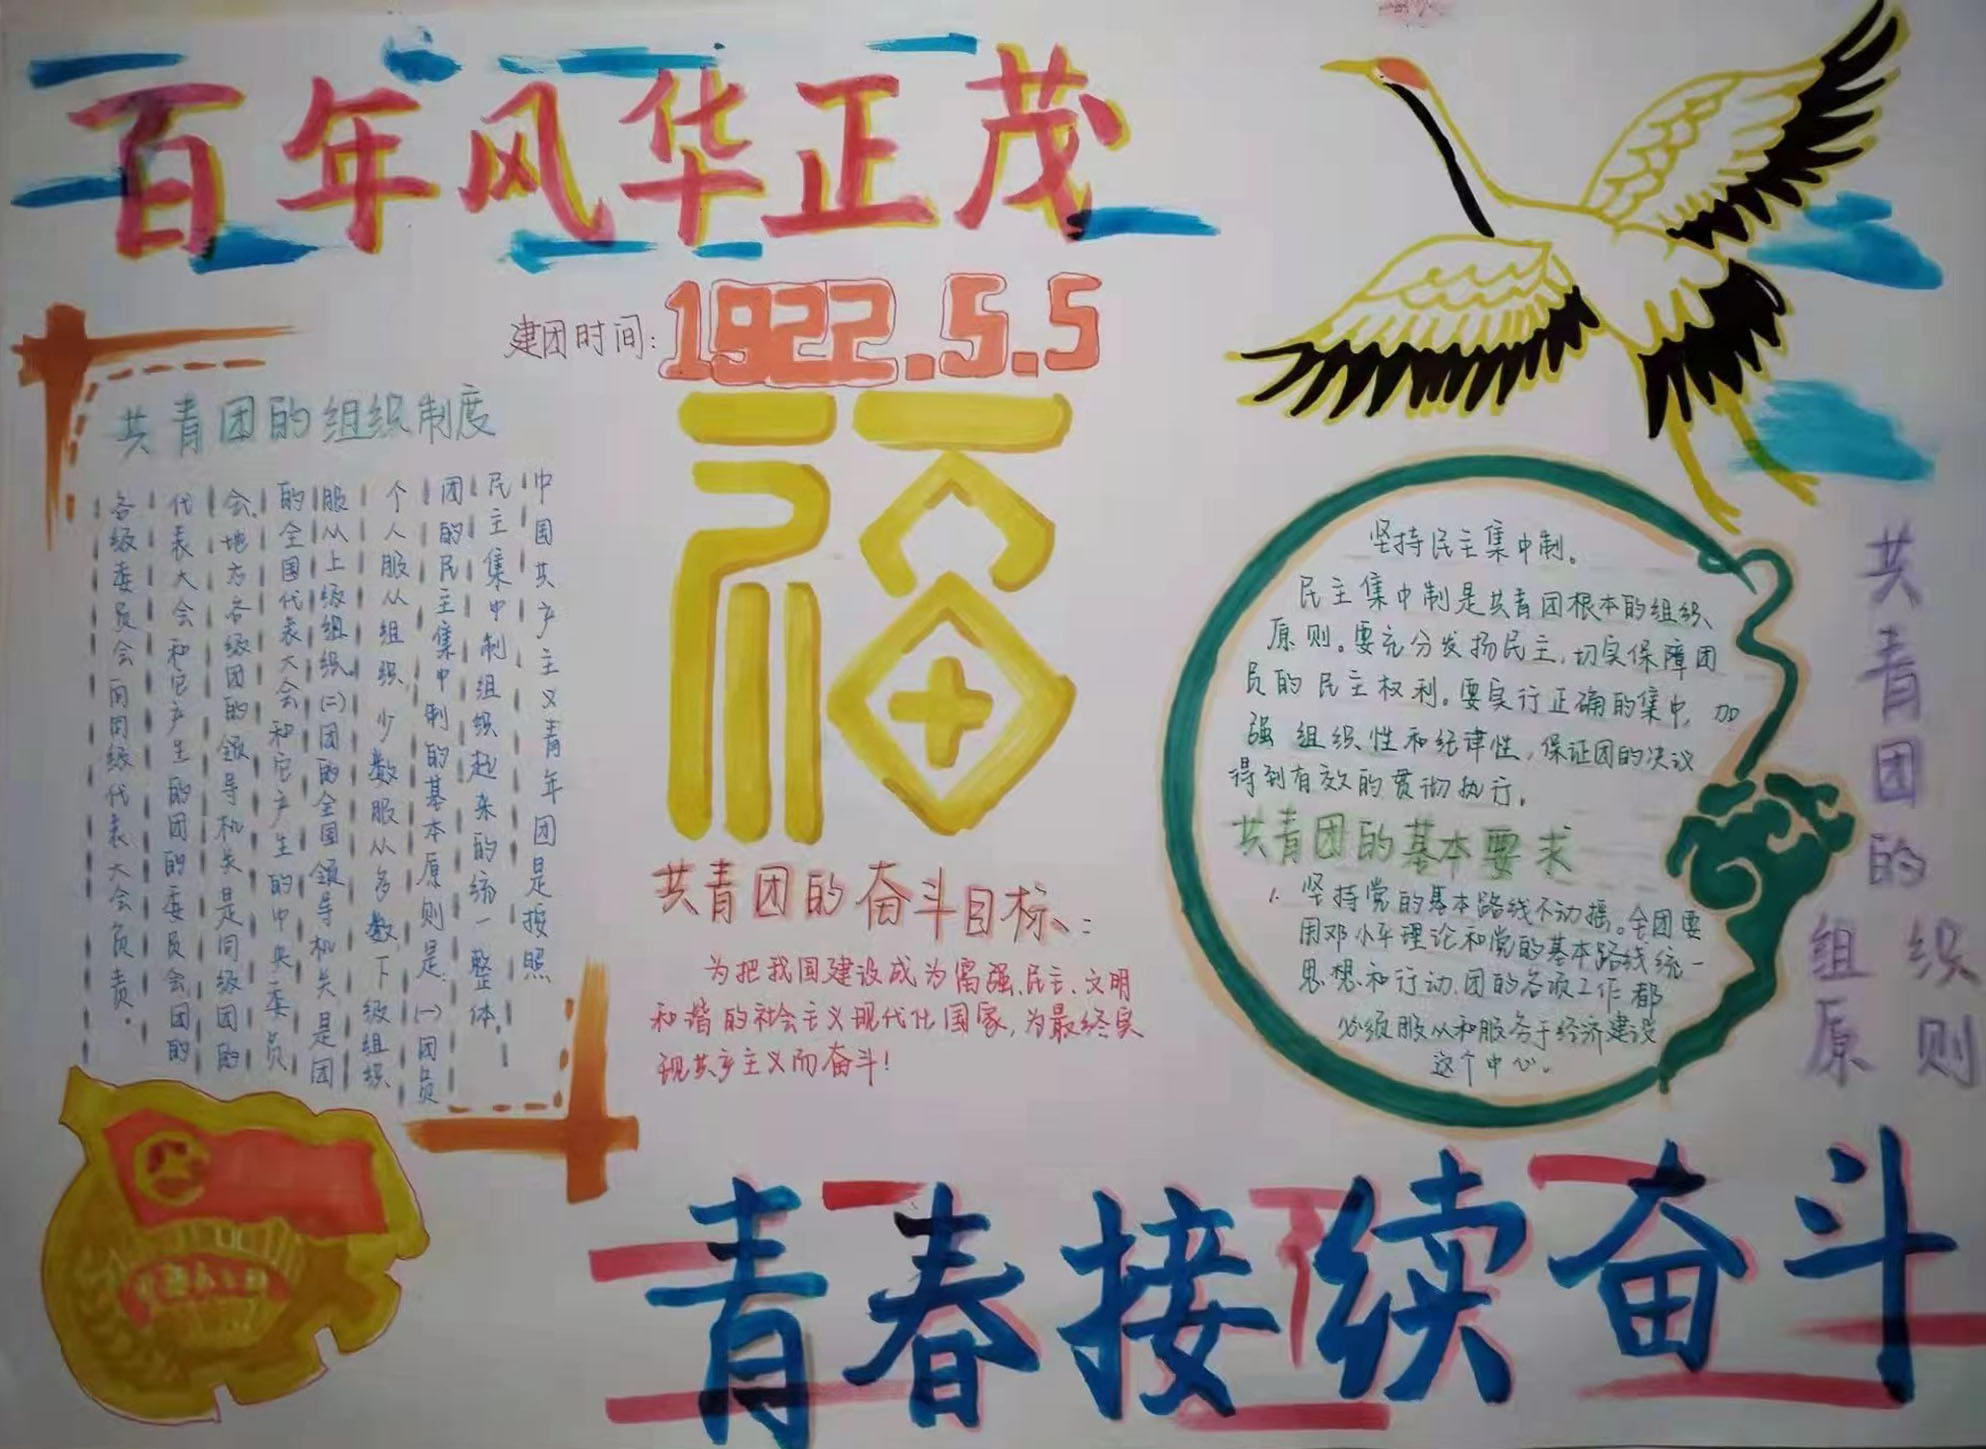 百年风华正茂
建团时间:1922.5.5
福
共青团的组织制度
中国共产主义青年团是按照
民主集中制组织起来的统一整体。
团的民主集中制的基本原则是:(一)团员
个人服从组织,少数服从多数,下级组织
服从上级组织(二)团的全国领导机关是团
的全国代表大会和它产生的中央委员
会,地方各级团的领导机关是同级团的
代表大会和它产生的团的委员会团的
各级委员会向同级代表大会负责。
共青团的奋斗目标:
为把我国建设成为富强、民主、文明
和谐的社会主义现代化国家,为最终实
现共产主义而奋斗!
共青团的
组织
原则
坚持民主集中制。
民主集中制是共青团根本的组织
原则。要充分发扬民主,切实保障团
员的民主权利。要实行正确的集中,加
强组织性和纪律性,保证团的决议
得到有效的贯彻执行。
共青团的基本要求
1.坚持党的基本路线不动摇。全团要
用邓小平理论和党的基本路线统一
思想和行动.团的各项工作都
必须服从和服务于经济建设
这个中心。
青春接续奋斗